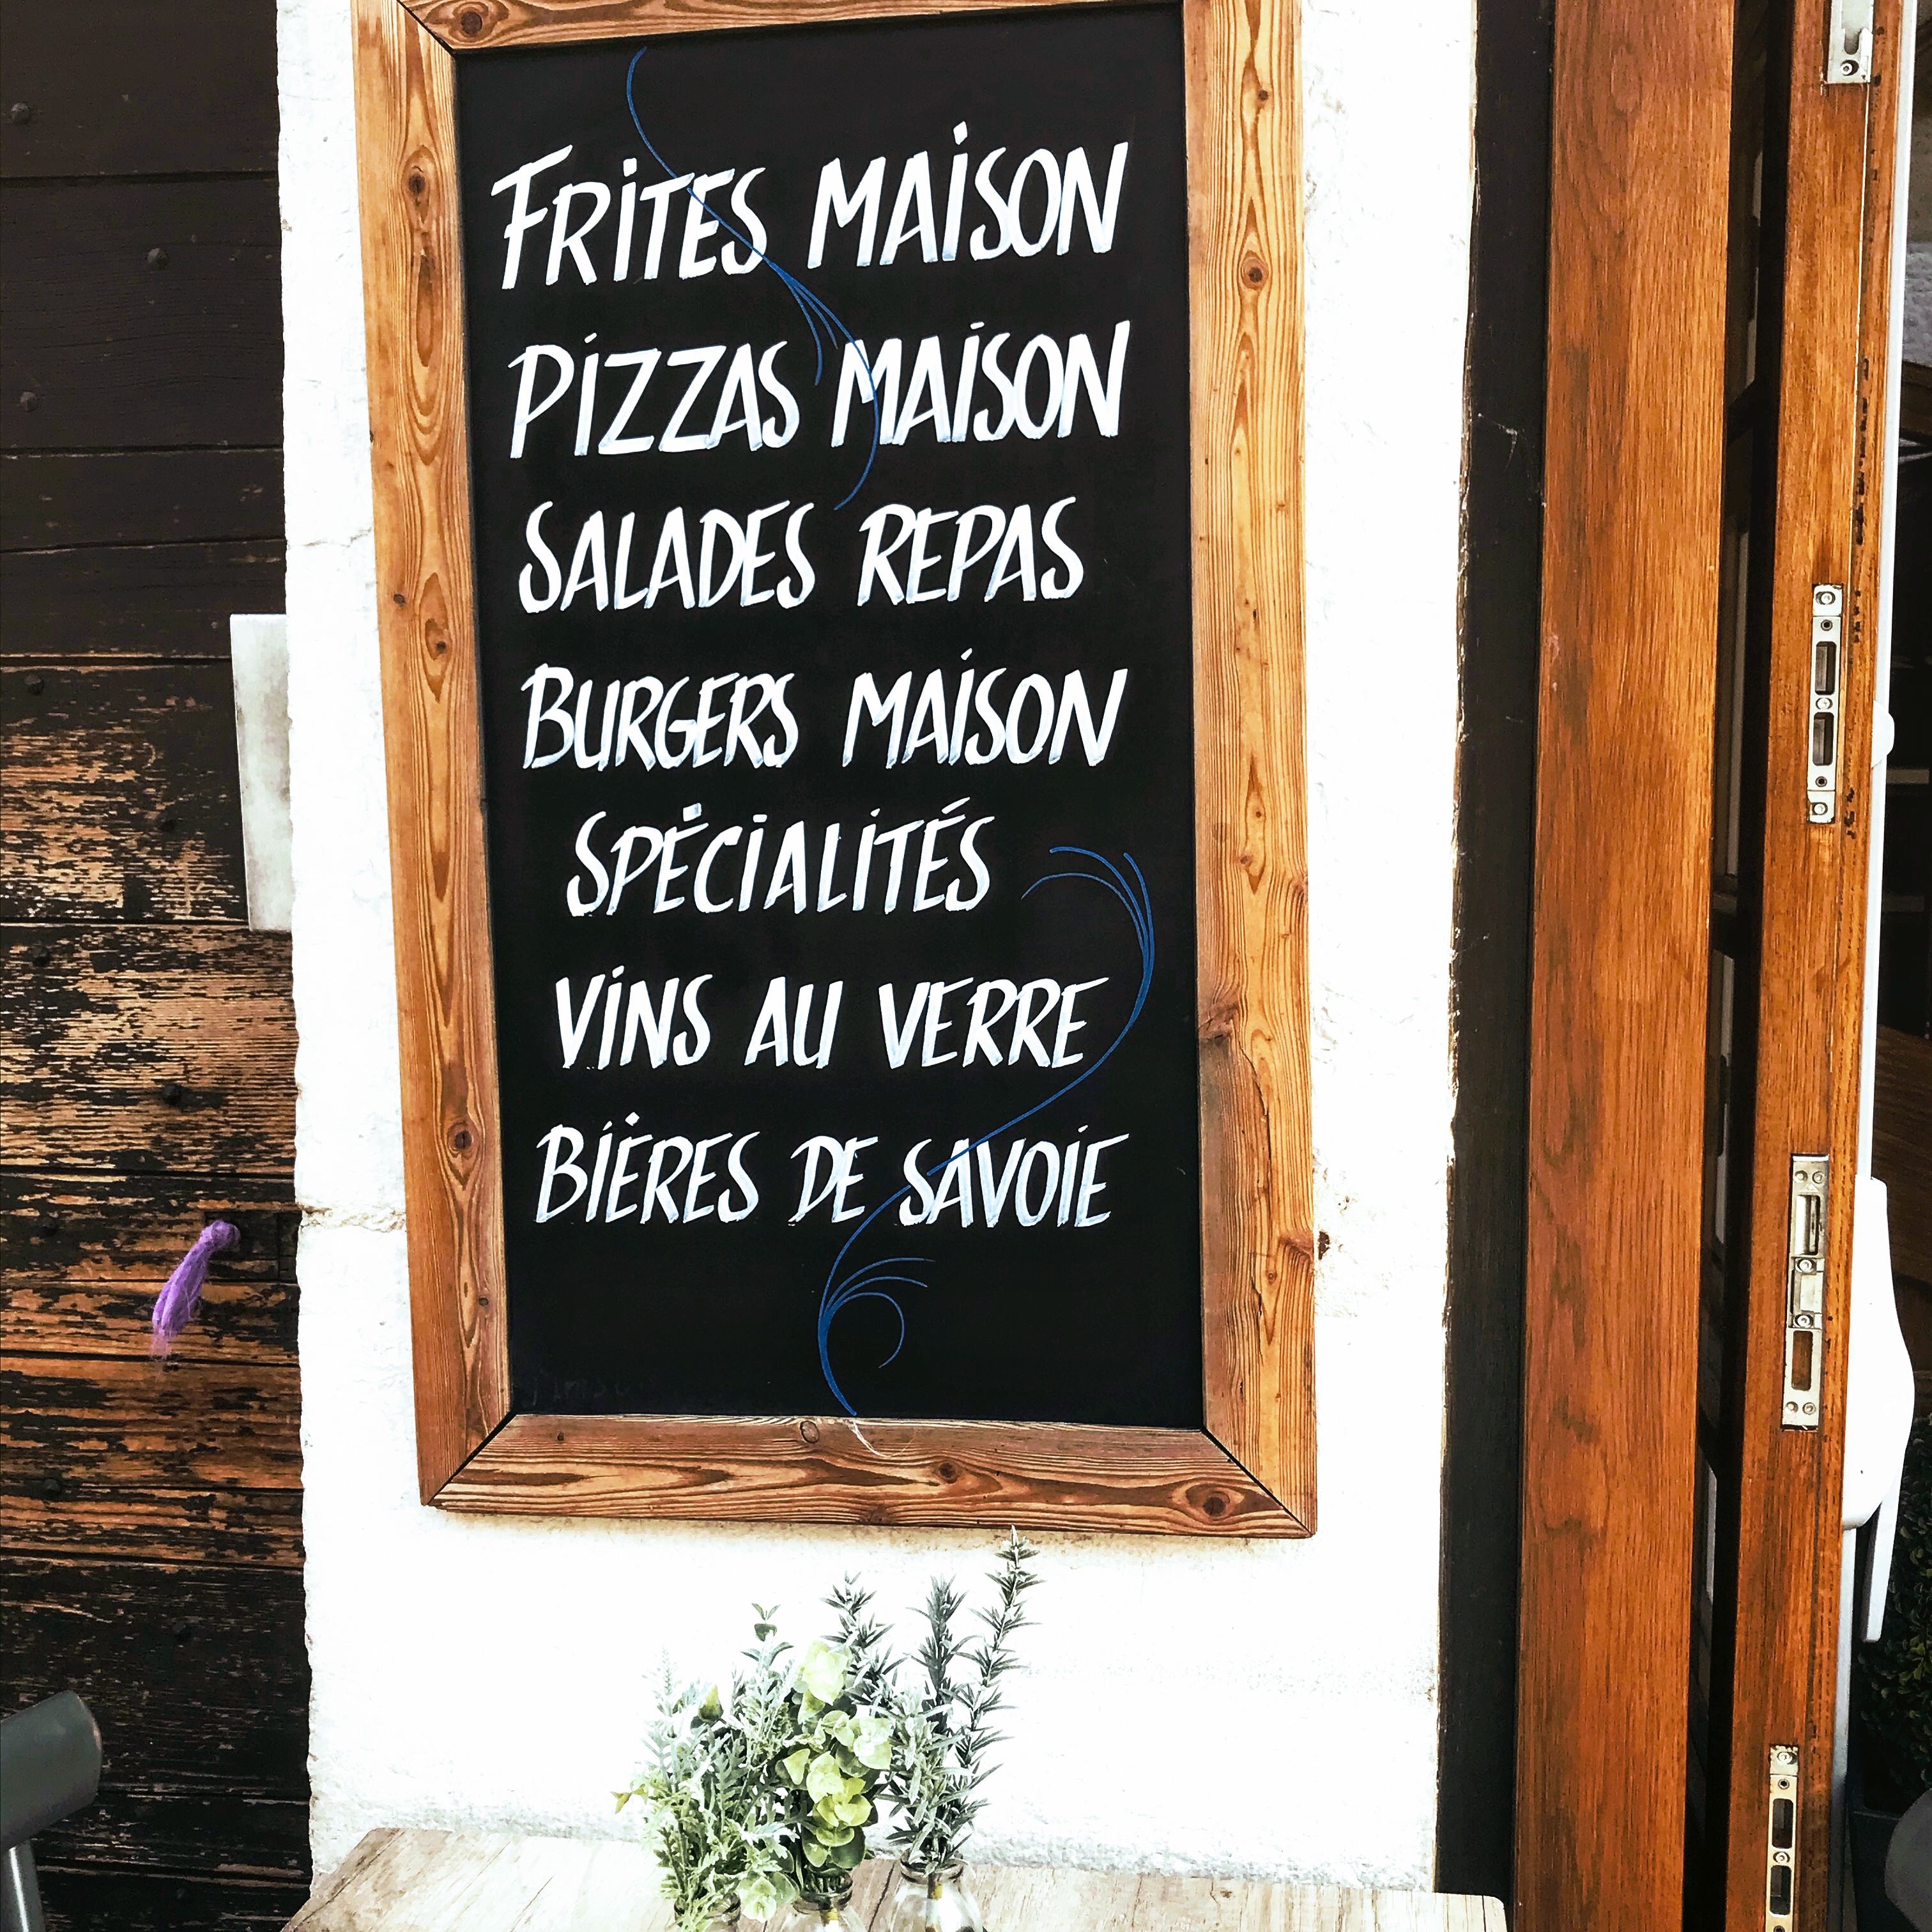 FRITES MAISON
PIZZAS MAISON
SALADES REPAS
BURGERS MAISON
SPÉCIALITÉS
VINS AU VERRE
BIÈRES DE SAVOIE